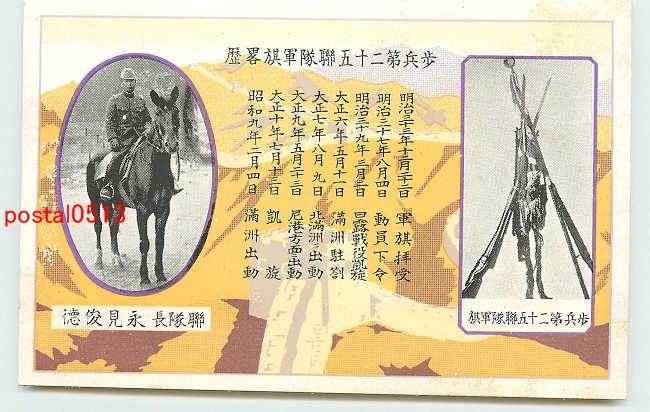 歩兵第二十五聯隊軍旗畧歴
明治三十三年十二月二十二日 軍旗拝受
明治三十七年八月四日 動員下令
明治三十九年三月三日 日露戰役凱旋
大正六年五月十一日 滿洲駐劄
大正七年八月九日 北滿洲出動
大正九年五月二十二日 尼港方面出動
大正十年七月十三日 凱旋
昭和九年二月四日 滿洲出動
聯隊長永見俊德
歩兵第二十五聯隊軍旗
postal0513